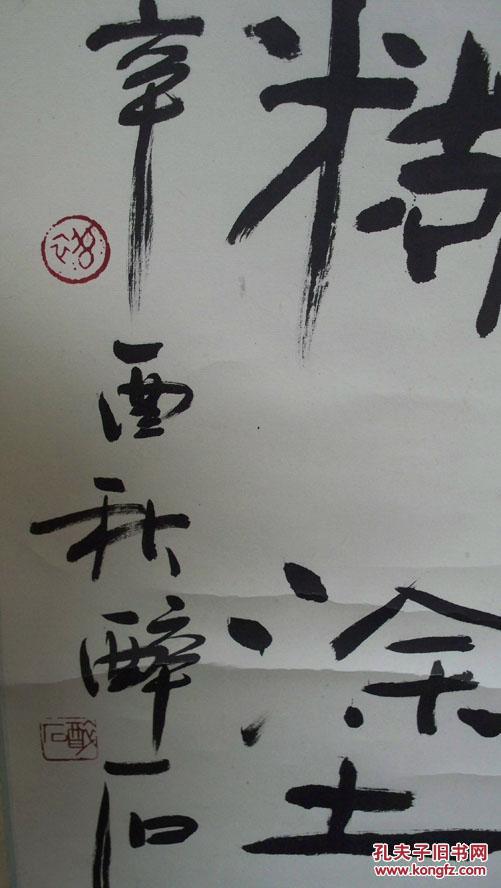 糊塗
辛酉秋醉石
孔夫子旧书网
www.kongfz.com